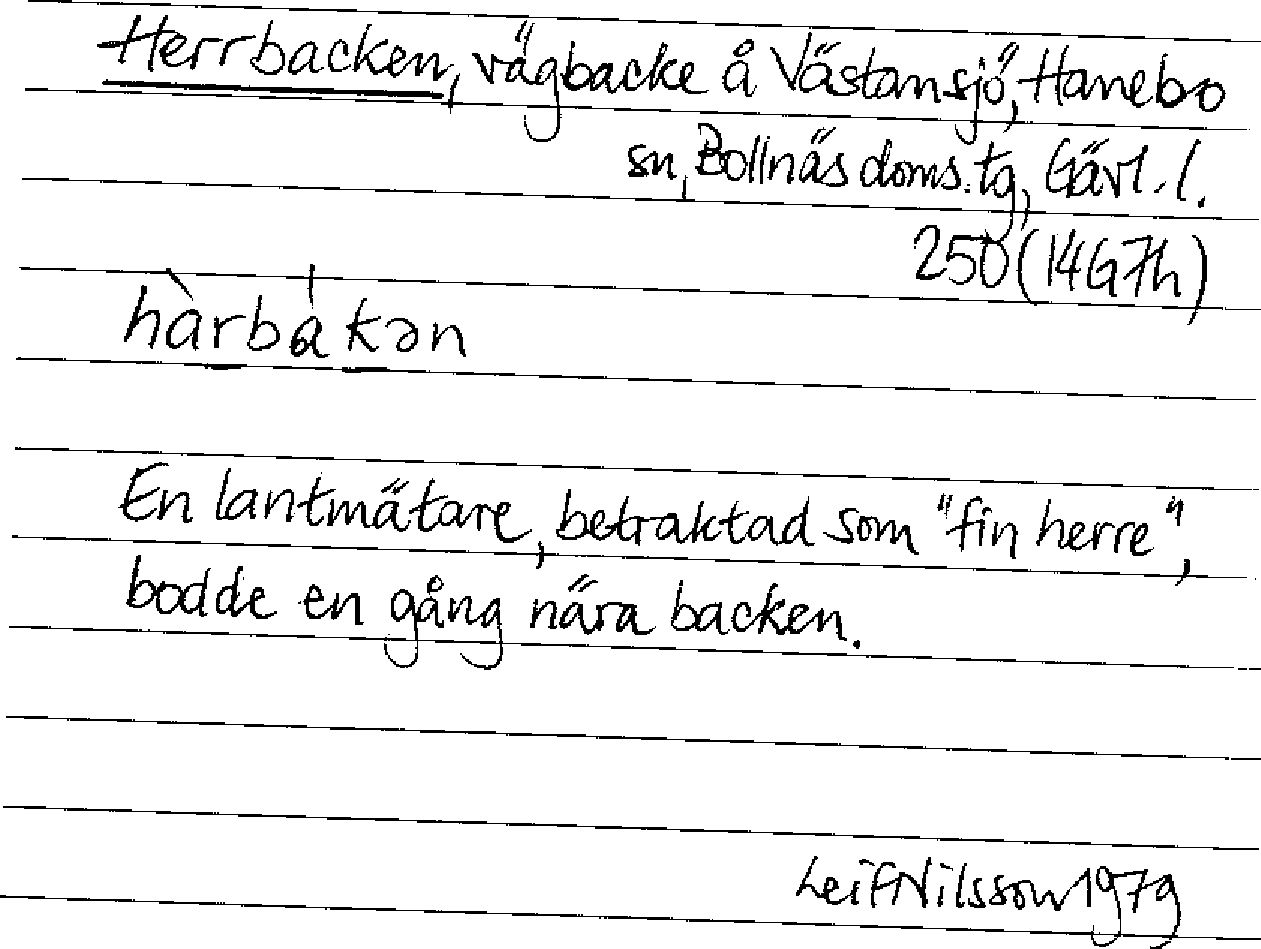 Herrbacken, vägbacke å Västansjö, Hanebo
sn, Bollnäs doms.tg, Gävl. l.
250 (14G7h)
hàrbákən
En lantmätare, betraktad som "fin herre",
bodde en gång nära backen.
Leif Nilsson 1979